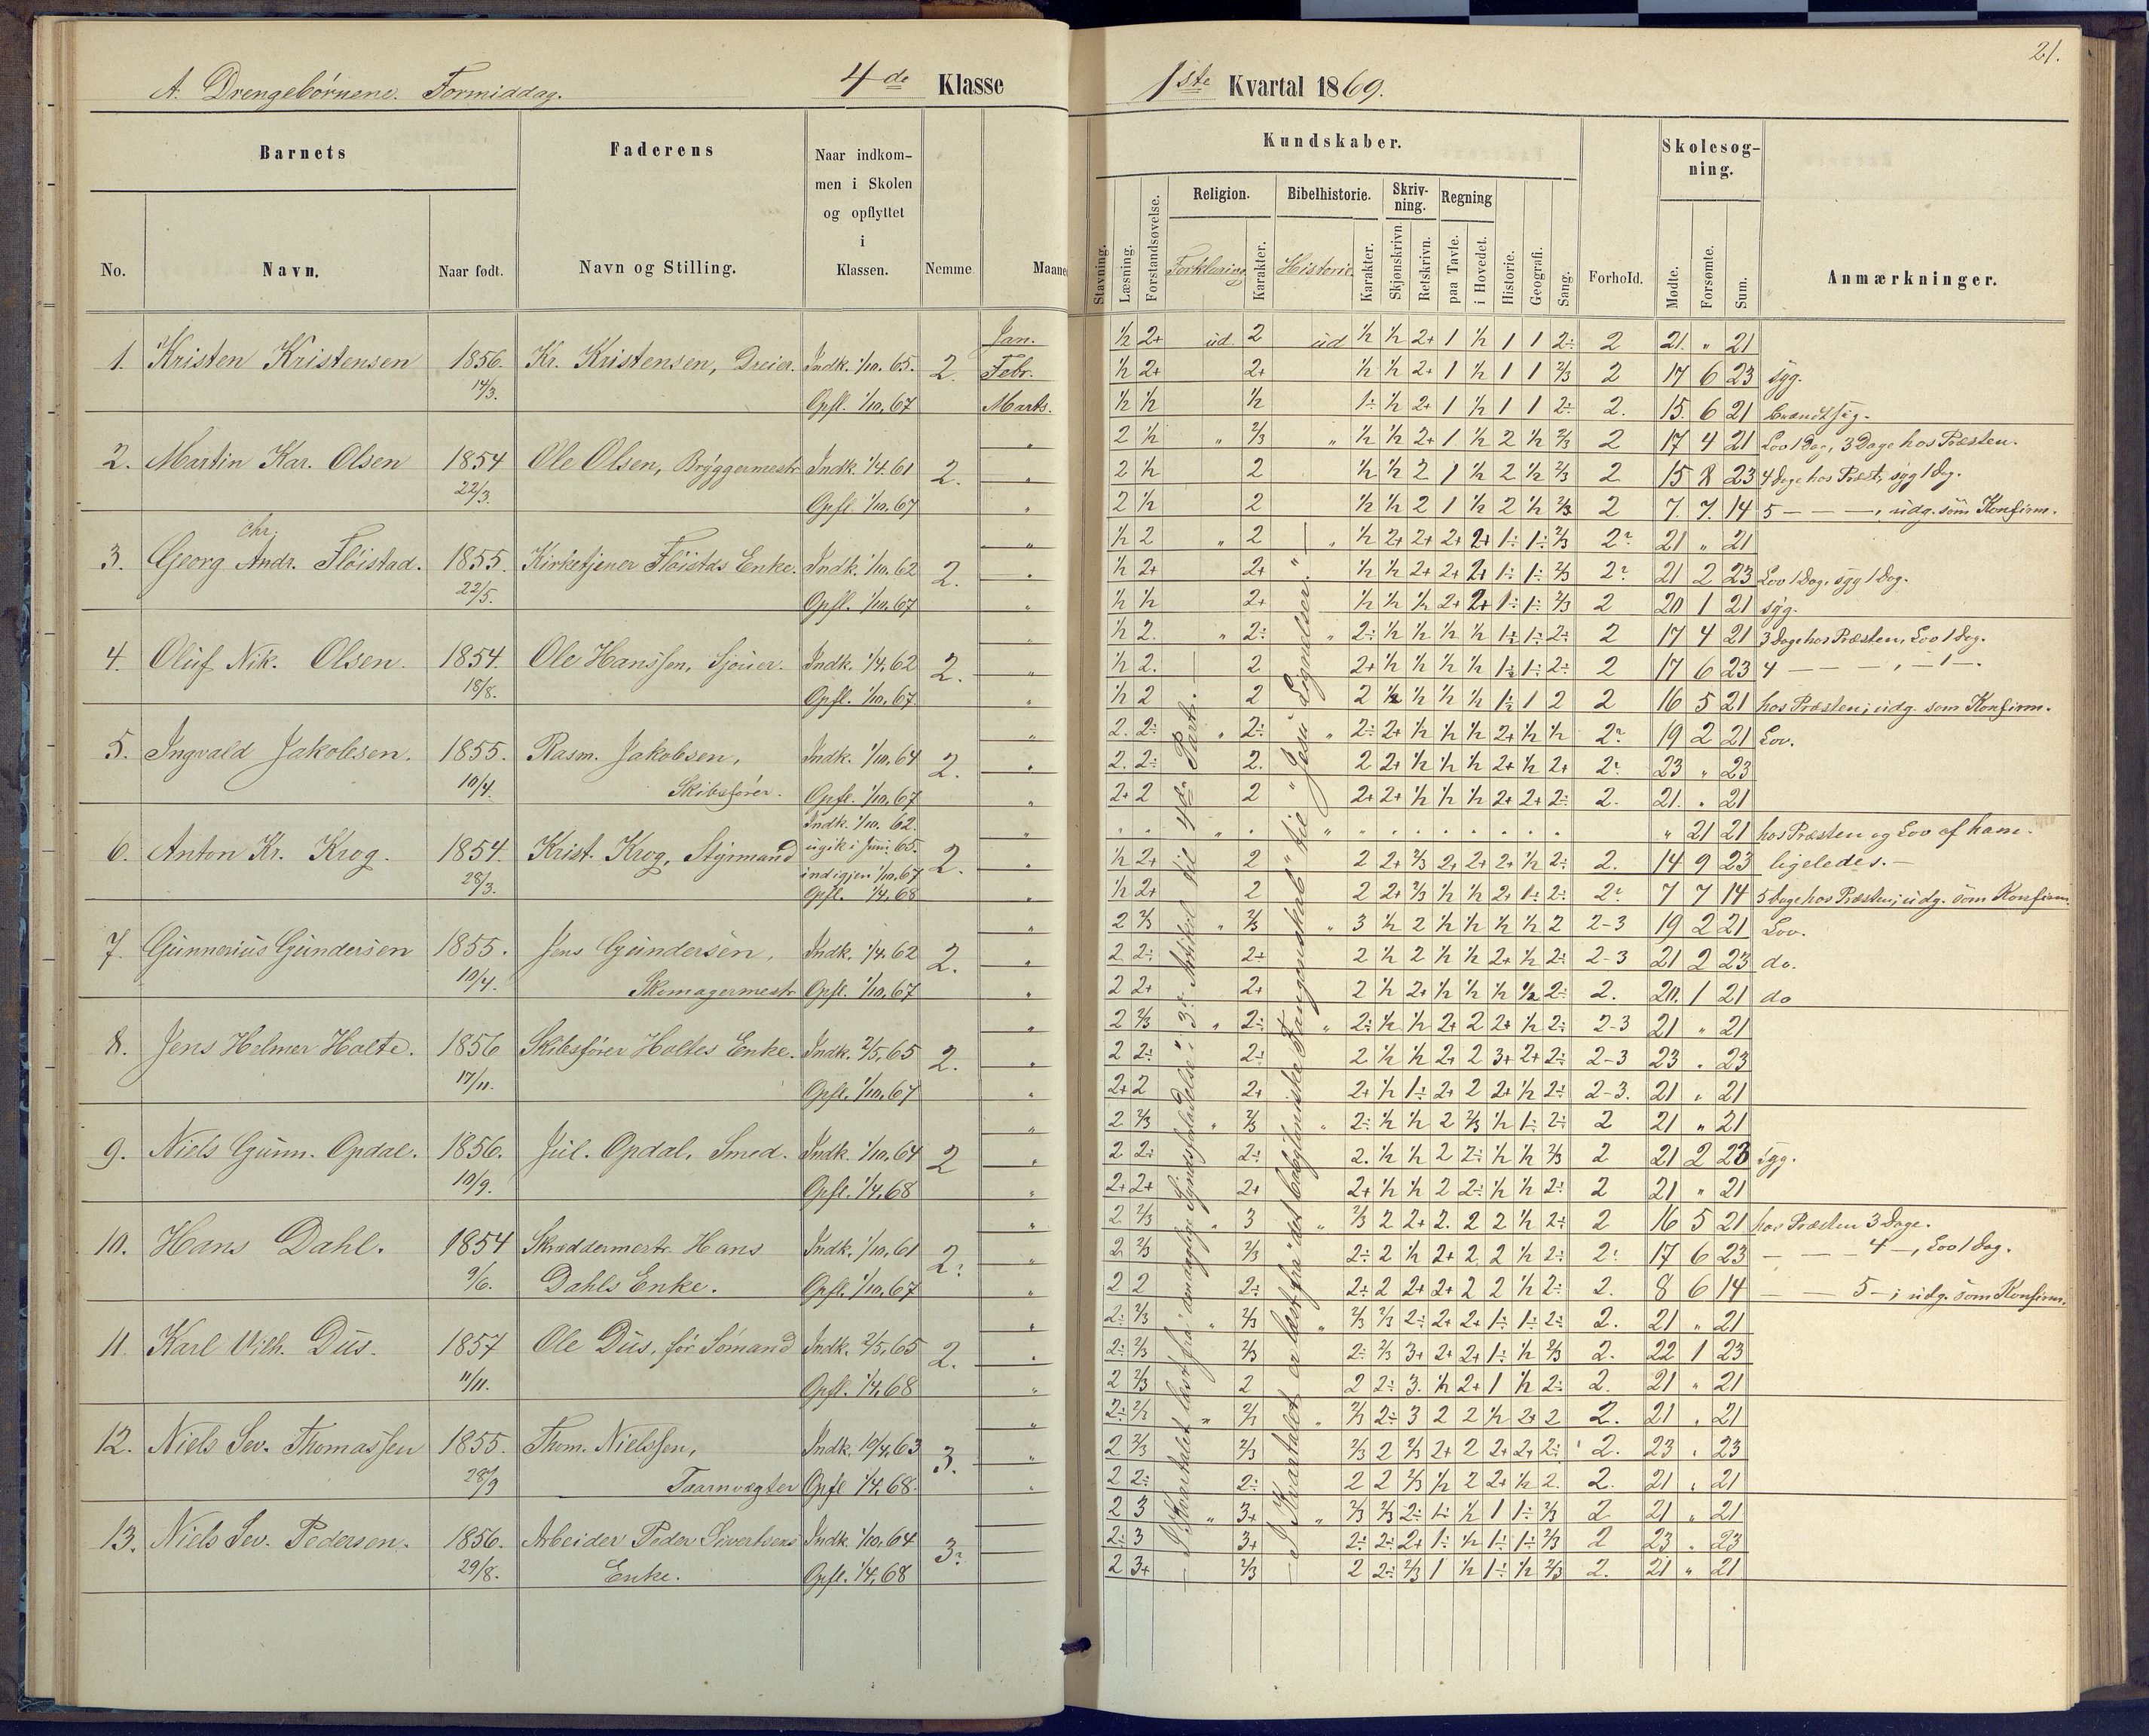 21.
A. Drengebørnene. Formiddag. 4de Klasse 1ste Kvartal 1869.
Barnets
Faderens
Naar indkom-
men i Skolen
og opflyttet
i
Klassen.
No.
Navn.
Naar født.
Navn og Stilling.
Nemme
Maane
Kundskaber.
Religion.
Bibelhistorie.
Skriv-
ning.
Regning
Skolesøg-
ning.
Stavning.
Læsning.
Forstandsøvelse.
Forklaring
Karakter.
Historie.
Karakter.
Skjønskrivn.
Retskrivn.
paa Tavle.
i Hovedet.
Historie.
Geografi.
Sang.
Forhold.
Mødte.
Forsømte.
Sum.
Anmærkninger.
Jan. ½ 2+ ud. 2 ud ½ ½ 2+ 1 ½ 1 1 2÷ 2 21. " 21
1. Kristen Kristensen 1856. Kr. Kristensen, Dreier. Indk. 1/10. 65. 2. Febr. ½ 2+ 2+ ½ ½ 2+ 1 ½ 1 1 2/3 2 17 6 23 syg.
14/3. Opfl. 1/10, 67 Marts. ½ ½ ½ 1÷ ½ 2+ 1 ½ 1 1 2÷ 2. 15. 6 21
" 2 ½ " 2/3 " ½ ½ 2+ 1 ½ 2 ½ 2/3 2 17 4 21 Lov 1 Dag, 3 Dage hos Præsten.
2. Martin Kar. Olsen 1854 Ole Olsen, Bryggermestr Indk. 1/4. 61 2. " 2 ½ 2 ½ ½ 2 1 ½ 2 ½ 2/3 2 15 8 23 4 Dage hos Præst, syg 1 Dag.
22/3. Opfl. 1/10, 67 " 2 ½ 2 ½ ½ 2 1 ½ 2 ½ 2/3 2 7. 7. 14 5 — — —, udg. som Konfirm.
Chr.
" ½ 2 " 2 " ½ 2+ 2+ 2+ 2+ 1÷ 1÷ 2/3 2? 21 " 21
3. Georg Andr. Fløistad. 1855. Kirketjener Fløistds Enke. Indk. 1/10. 62 2. " ½ 2+ 2+ ½ ½ 2+ 2+ 2+ 1÷ 1÷ 2/3 2? 21 2 23 Lov 1 Dag, syg 1 Dag.
22/5. Opfl. 1/10, 67 " ½ ½ 2+ ½ ½ ½ 2+ 2+ 1÷ 1÷ 2/3 2 20 1 21 syg.
" ½ 2. " 2÷ " 2÷ ½ ½ ½ ½ 1÷ 1÷ 2÷ 2 17 4 21 3 Dage hos Præsten, Lov 1 Dag.
4. Oluf Nik. Olsen. 1854. Ole Hanssen, Sjouer. Indk. 1/4, 62 2. " ½ 2. 2 2+ ½ ½ ½ ½ 1÷ 1÷ 2÷ 2 17 6 23 4 — — —, —1—.
18/8. Opfl. 1/10, 67. " ½ 2 2 2 ½ ½ ½ ½ 1÷ 1 2 2 16 5 21 hos Præsten; udg. som Konfirm.
" 2. 2÷ " 2÷ " 2÷ 2+ ½ ½ ½ 2+ ½ ½ 2? 19 2 21 Lov.
5. Ingvald Jakobsen. 1855. Rasm. Jakobsen, Indk. 1/10, 64 2. " 2. 2÷ 2. 2 2+ ½ ½ ½ 2+ ½ 2+ 2? 23 " 23
10/4. Skibsfører. Opfl. 1/10, 67 " 2+ 2 2 2+ 2+ ½ ½ ½ 2+ 2+ 2÷ 2. 21. " 21
Indk. 1/10. 62. " " 21 21 hos Præsten og Lov af ham.
6. Anton Kr. Krog. 1854. Krist. Krog, Styrmand ugik i Juni 65. 2. " ½ 2+ 2 2 2+ 2/3 2+ 2+ 2+ ½ 2÷ 2. 14 9 23 ligeledes. —
28/3. indigjen 1/10, 67
Opfl. 1/4, 68 " ½ 2+ 2 2 2+ 2/3 ½ ½ 2+ 1÷ 2÷ 2? 7 7 14 5 Dage hos Præsten; udg. som Konfirm.
" 2 2/3 " 2/3 " 3 ½ 2 ½ ½ ½ ½ 2 2-3 19 2 21 Lov.
7. Gunnerius Gundersen 1855. Jens Gundersen, Indk. 1/4, 62 2. " 2 2÷ 2÷ 2 ½ 2 ½ ½ 2+ ½ 2÷ 2-3 21 2 23 do.
10/4. Skomagermestr Opfl. 1/10, 67 " 2 2+ 2+ 2 ½ 2+ ½ ½ ½ ½ 2÷ 2. 20. 1 21 do
" 2 2/3 " 2÷ " 2÷ ½ ½ 2+ 2 2+ ½ 2÷ 2-3 21 " 21
8. Jens Helmer Holte. 1856 Skibsfører Holtes Enke. Indk. 2/5, 65 2. " 2 2÷ 2÷ 2 ½ ½ 2+ 2 3+ 2+ 2÷ 2-3 23 " 23
17/11. Opfl. 1/10, 67 " 2+ 2 2+ 2+ ½ 1÷ 2+ 2 2+ ½ 2÷ 2-3. 21 " 21
" 2 2/3 " 2/3 " 2÷ ½ ½ 2 2/3 ½ 1÷ 2÷ 2 21 " 21
9. Niels Gunn. Opdal. 1856. Jul. Opdal, Smed. Indk. 1/10, 64 2 " 2 2÷ 2÷ 2. ½ ½ 2 2÷ ½ ½ 2/3 2 21 2 23 syg.
10/9. Opfl. 1/4, 68 " 2+ 2+ 2+ 2+ ½ ½ 2 2÷ ½ ½ 2÷ 2 21 " 21
" 2 2/3 " 3 " 2/3 2 2+ 2. 2 2 ½ 2÷ 2 16 5 21 hos Præsten 3 Dage.
10. Hans Dahl. 1854 Skræddermestr. Hans Indk. 1/10, 61 2? " 2 2/3 2/3 2÷ 2 ½ 2+ 2 2 ½ 2÷ 2? 17 6 23 — — — 4 —, Lov 1 Dag.
9/6. Dahls Enke. Opfl. 1/10, 67 " 2 2 2÷ 2÷ 2 2+ 2+ 2 2 ½ 2÷ 2. 8 6 14 — — 5 —; udg. som Konfirm.
" 2÷ 2/3 " 2/3 " 2/3 2/3 2÷ 2+ 2+ 1÷ 1÷ 2÷ 2. 21 " 21
11. Karl Vilh. Dus. 1857 Ole Dus, før Sømand Indk. 2/5, 65 2. " 2÷ 2/3 2/3 2÷ 2/3 3+ 2+ 2+ 1÷ ½ 2/3 2. 22 1 23
11/11. Opfl. 1/4, 68 " 2 2/3 2 2 2÷ 3. ½ 2+ 1 ½ 2÷ 2. 21 " 21
" 2÷ 2/3 " 2/3 " 2/3 2÷ 3 2 2 ½ 2+ 2 2. 21 " 21
12. Niels Sev. Thomassen 1855. Thom. Nielssen, Indk. 10/4, 63 3. " 2 2/3 2/3 2/3 2 2/3 2+ 2 2+ 2+ 2÷ 2. 23 " 23
28/9 Taarnvægter Opfl. 1/4, 68. " 2 2÷ 2÷ 2 2 2/3 ½ 2 2+ ½ 2. 2. 21 " 21
2 3 " 3+ " 2/3 2/3 2÷ 1÷ ½ 1 1÷ 2/3 2 21 " 21
13. Niels Sev. Pedersen. 1856. Arbeider Peder Sivertsens Indk. 1/10. 64 3? 2÷ 3 3+ 2÷ 2÷ 2+ 1÷ ½ 1÷ 1÷ 2/3 2 23 " 23
29/8. Enke. Opfl. 1/4, 68 2 3+ 2/3 2 2÷ 2/3 1 ½ 1÷ ½ 2/3 2. 21 " 21
— I Kvartalet læst fra "den daglige Syndsforladelse" i 3die Artikel til 4de Part. —
— I Kvartalet er læst fra "det babyloniske Fangenskab" til "Jesu Lignelser". —